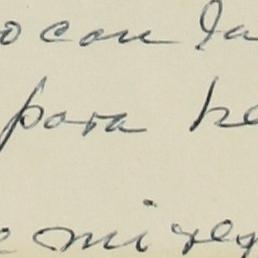 o con la
para he
e mi reg